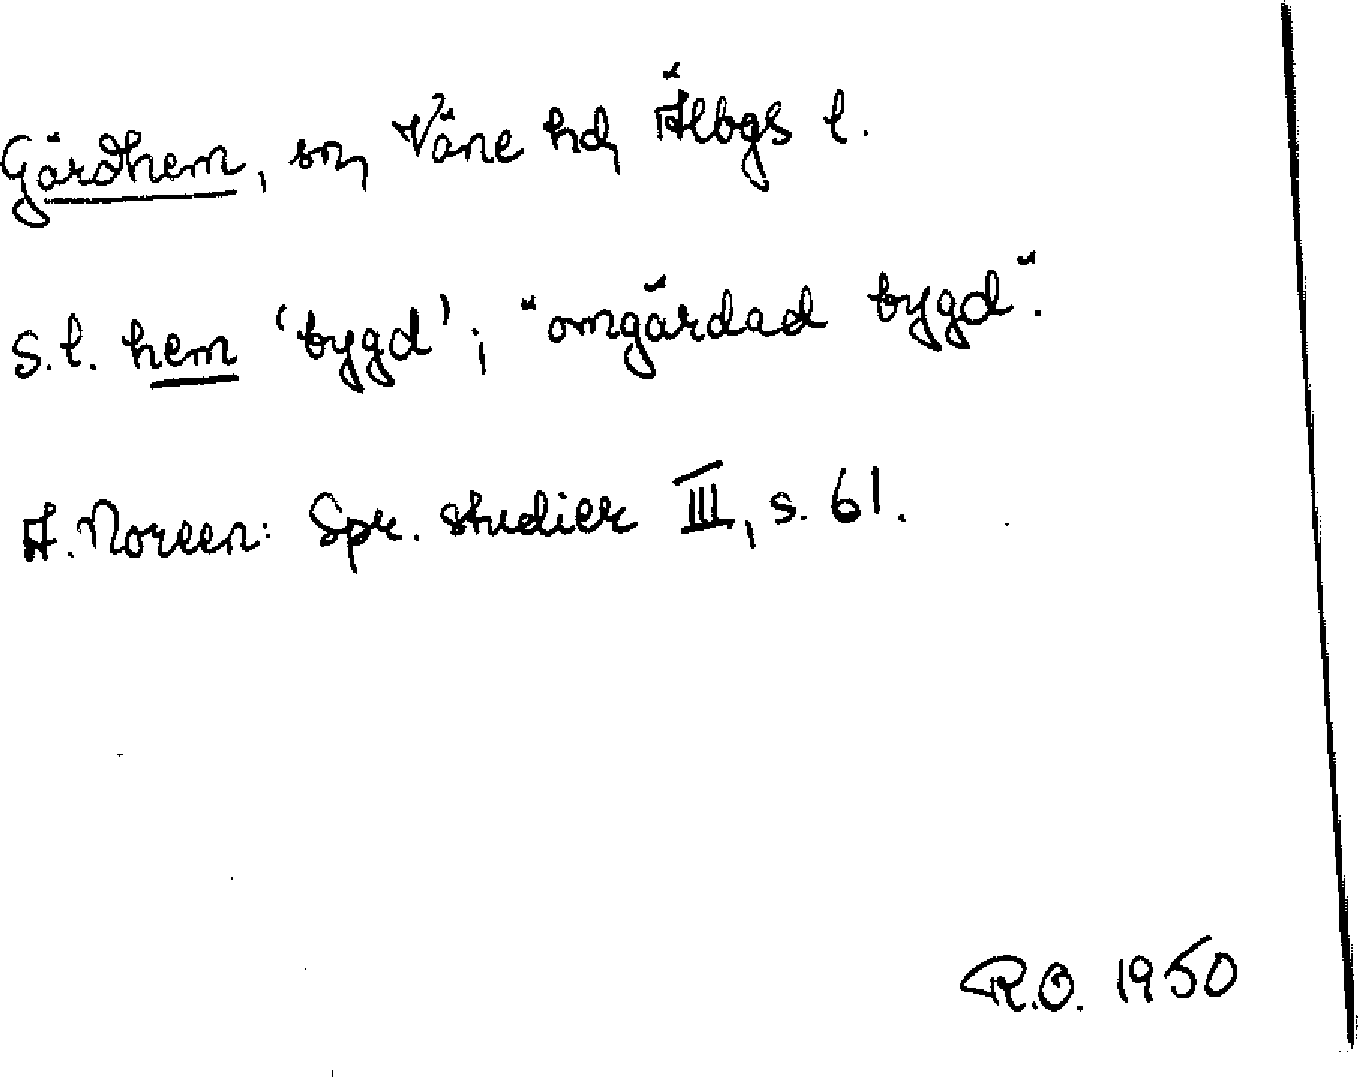 Gärdhem, sn, Väne hd, Älbgs l.
s.l. hem 'bygd'; "omgärdad bygd".
A. Noreen: Spr. studier III, s. 61.
R.O. 1950